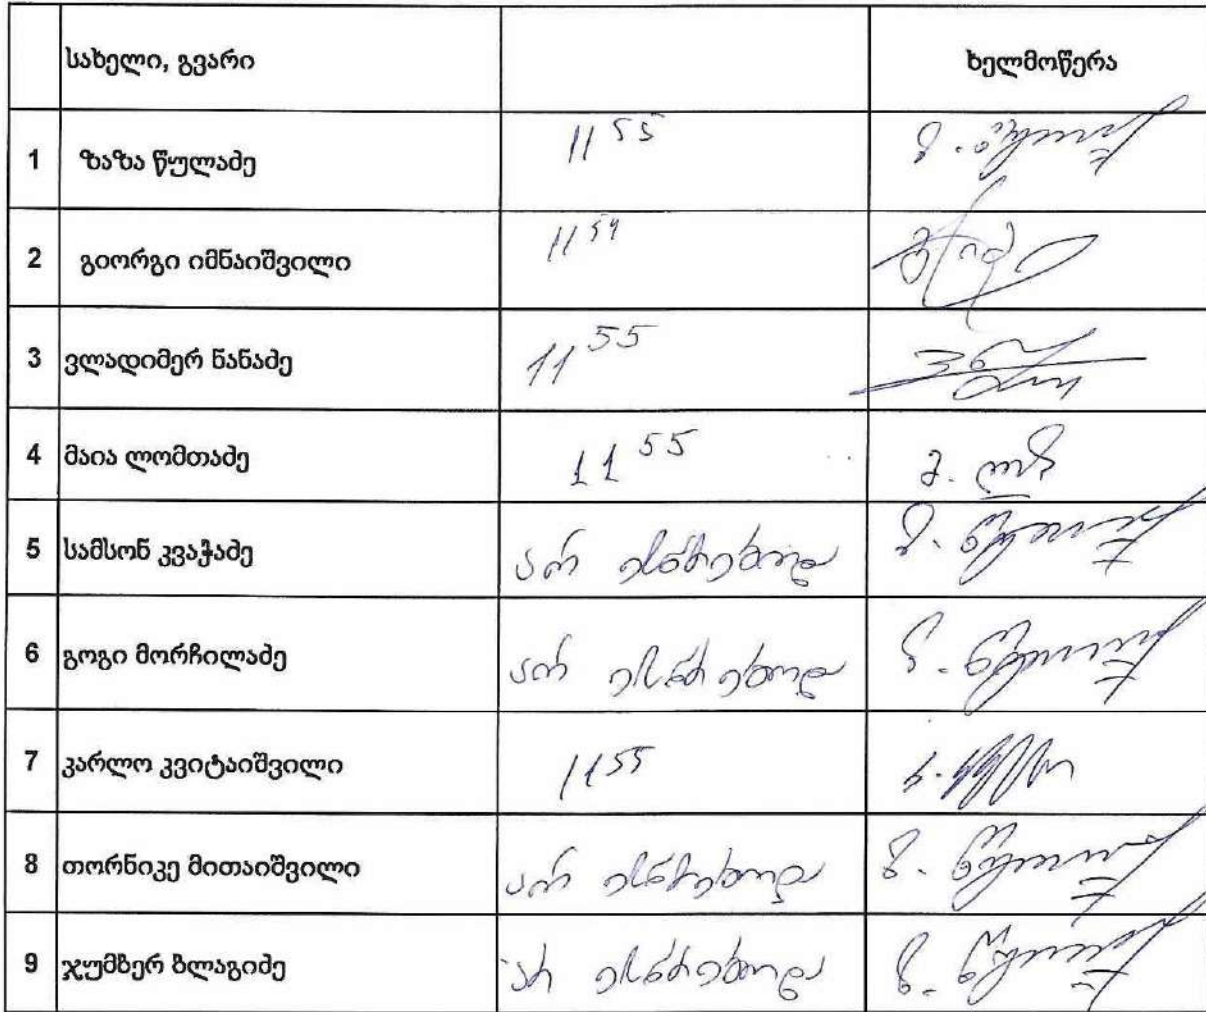 სახელი, გვარი ხელმოწერა
1 ზაზა წულაძე 11 55 ზ. წულაძე
2 გიორგი იმნაიშვილი 11 54
3 ვლადიმერ ნანაძე 11 55
4 მაია ლომთაძე 11 55 მ. ლომ
5 სამსონ კვაჭაძე არ ესწრებოდა ზ. წულაძე
6 გოგი მორჩილაძე არ ესწრებოდა ზ. წულაძე
7 კარლო კვიტაიშვილი 11 55
8 თორნიკე მითაიშვილი არ ესწრებოდა ზ. წულაძე
9 ჯუმბერ ბლაგიძე არ ესწრებოდა ზ. წულაძე